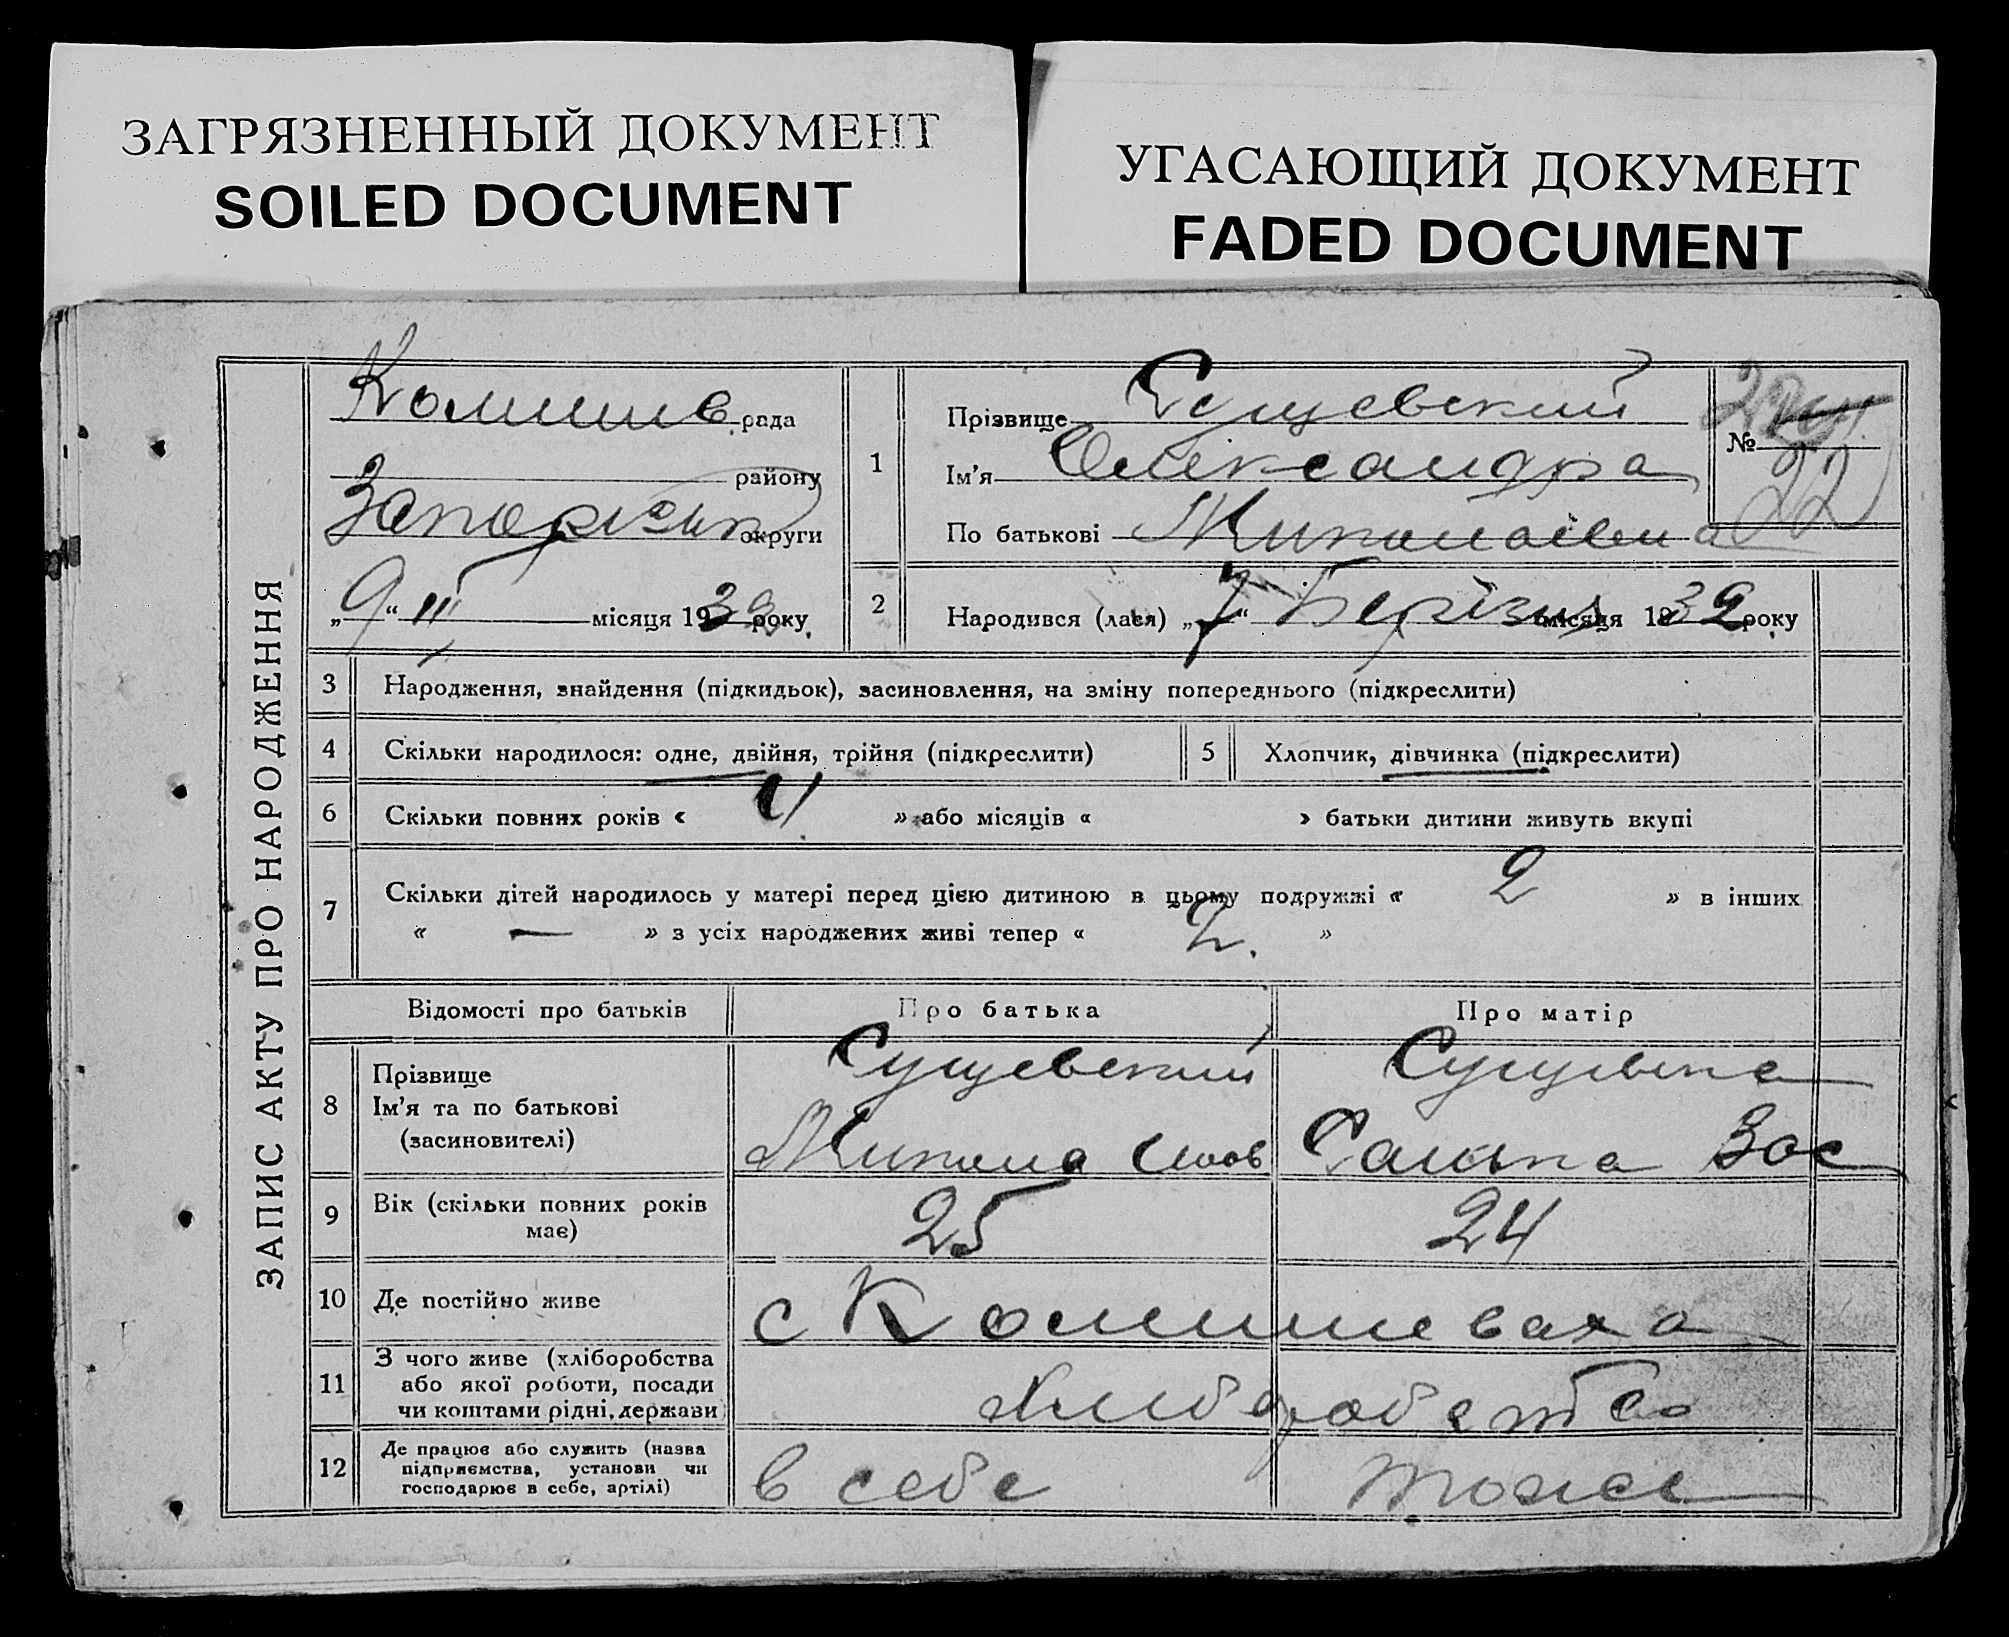 ЗАГРЯЗНЕННЫЙ ДОКУМЕНТ
SOILED DOCUMENT
УГАСАЮЩИЙ ДОКУМЕНТ
FADED DOCUMENT
ЗАПИС АКТУ ПРО НАРОДЖЕННЯ
Комишов рада
району
округи
„9“ III місяця 1933 року
1
Прізвище Сущевский
Ім'я Олександра
По батькові Миколаївна
№ 22
2 Народився (лася) „7“ Березня місяця 1932 року
3 Народження, знайдення (підкидьок), засиновлення, на зміну попереднього (підкреслити)
4 Скільки народилося: одне, двійня, трійня (підкреслити)
5 Хлопчик, дівчинка (підкреслити)
6 Скільки повних років « 4 » або місяців « » батьки дитини живуть вкупі
7 Скільки дітей народилось у матері перед цією дитиною в цьому подружжі « 2 » в інших
« — » з усіх народжених живі тепер « 2. »
Відомості про батьків Про батька Про матір
8 Прізвище
Ім'я та по батькові
(засиновителі)
Сущевский
Микола
Сущевска
Галька
9 Вік (скільки повних років
має)
25 24
10 Де постійно живе с Комишеваха
11 З чого живе (хліборобства
або якої роботи, посади
чи коштами рідні, держави
хлиборобство
12 Де працює або служить (назва
підприємства, установи чи
господарює в себе, артілі)
в себе тоже